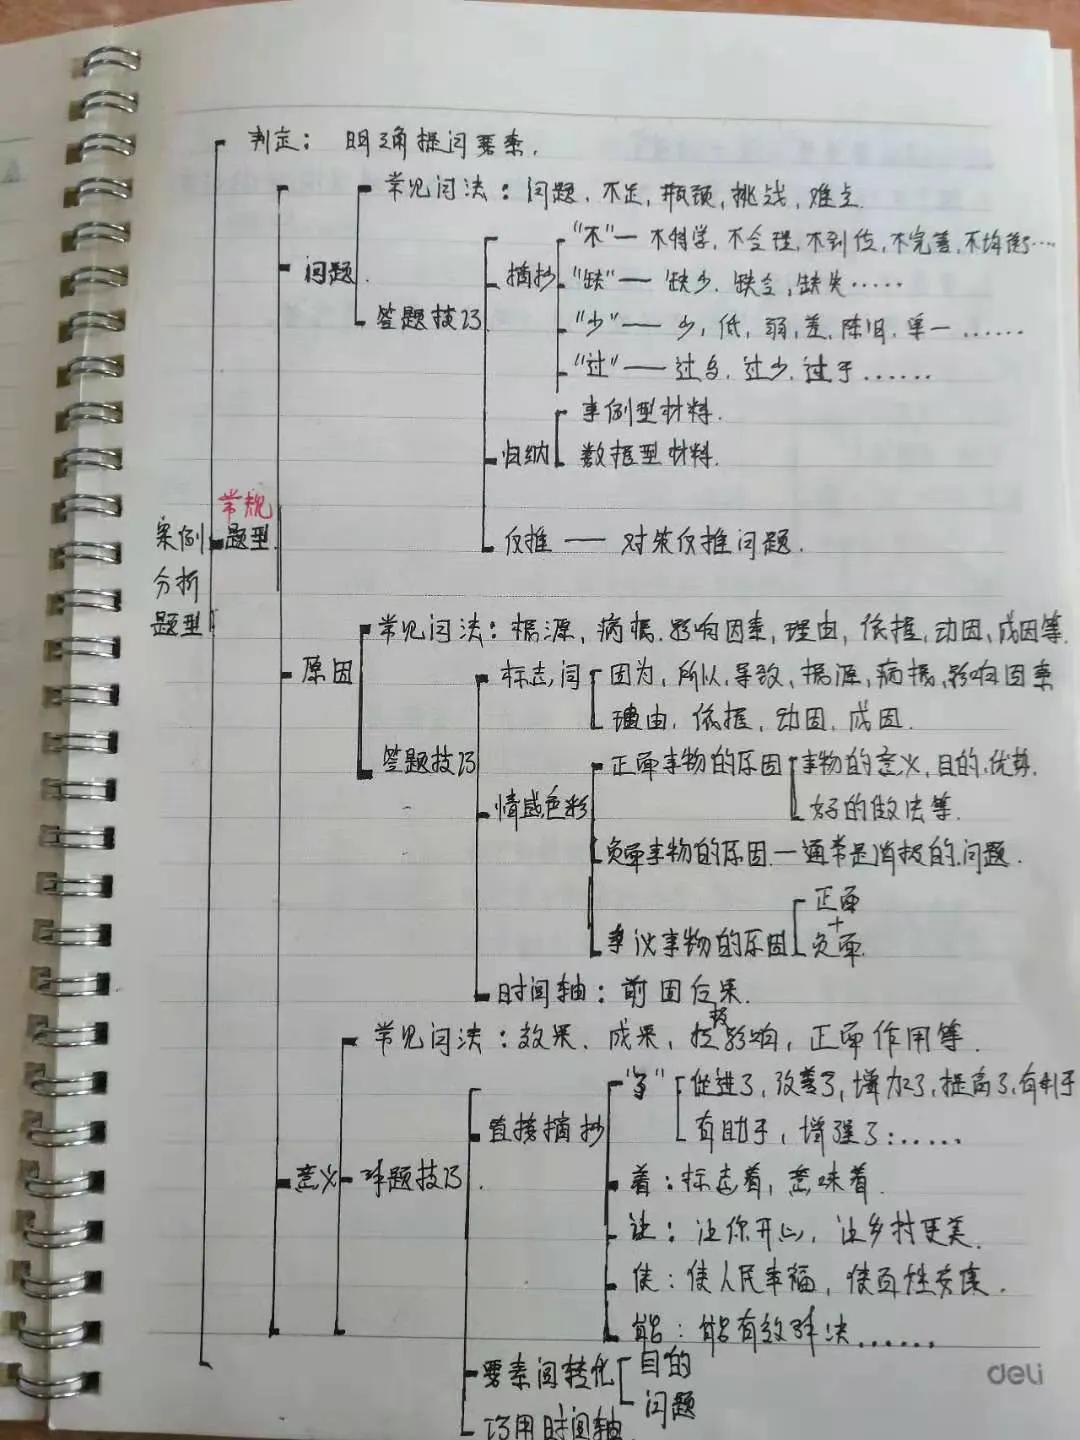 判定：明确提问要素.
常见问法：问题、不足，瓶颈，挑战，难点.
"不"— 不科学，不合理，不到位，不完善，不均衡…
问题.
摘抄
"缺"— 缺少. 缺乏，缺失……
答题技巧
"少"—— 少，低，弱，差，陈旧，单一……
"过"—— 过多，过少，过于……
事例型材料.
归纳
数据型材料.
常规
案例
题型
反推 —— 对策反推问题.
分析
题型
常见问法：根源，病根，影响因素，理由，依据，动因，成因等.
原因
标志词
因为，所以，导致，根源，病根，影响因素
理由，依据，动因，成因.
答题技巧
正面事物的原因
事物的意义，目的，优势.
情感色彩
好的做法等.
负面事物的原因—通常是消极的问题.
正面
+
争议事物的原因
负面
时间轴：前因后果.
常见问法：效果、成果，积极影响，正面作用等.
"了"
促进了，改善了，增加了，提高了，有利于
直接摘抄
有助于，增强了……
意义
答题技巧
着：标志着，意味着.
让：让你开心，让乡村更美.
使：使人民幸福，使百姓安康.
能：能有效解决……
要素间转化
目的
问题
巧用时间轴
deli